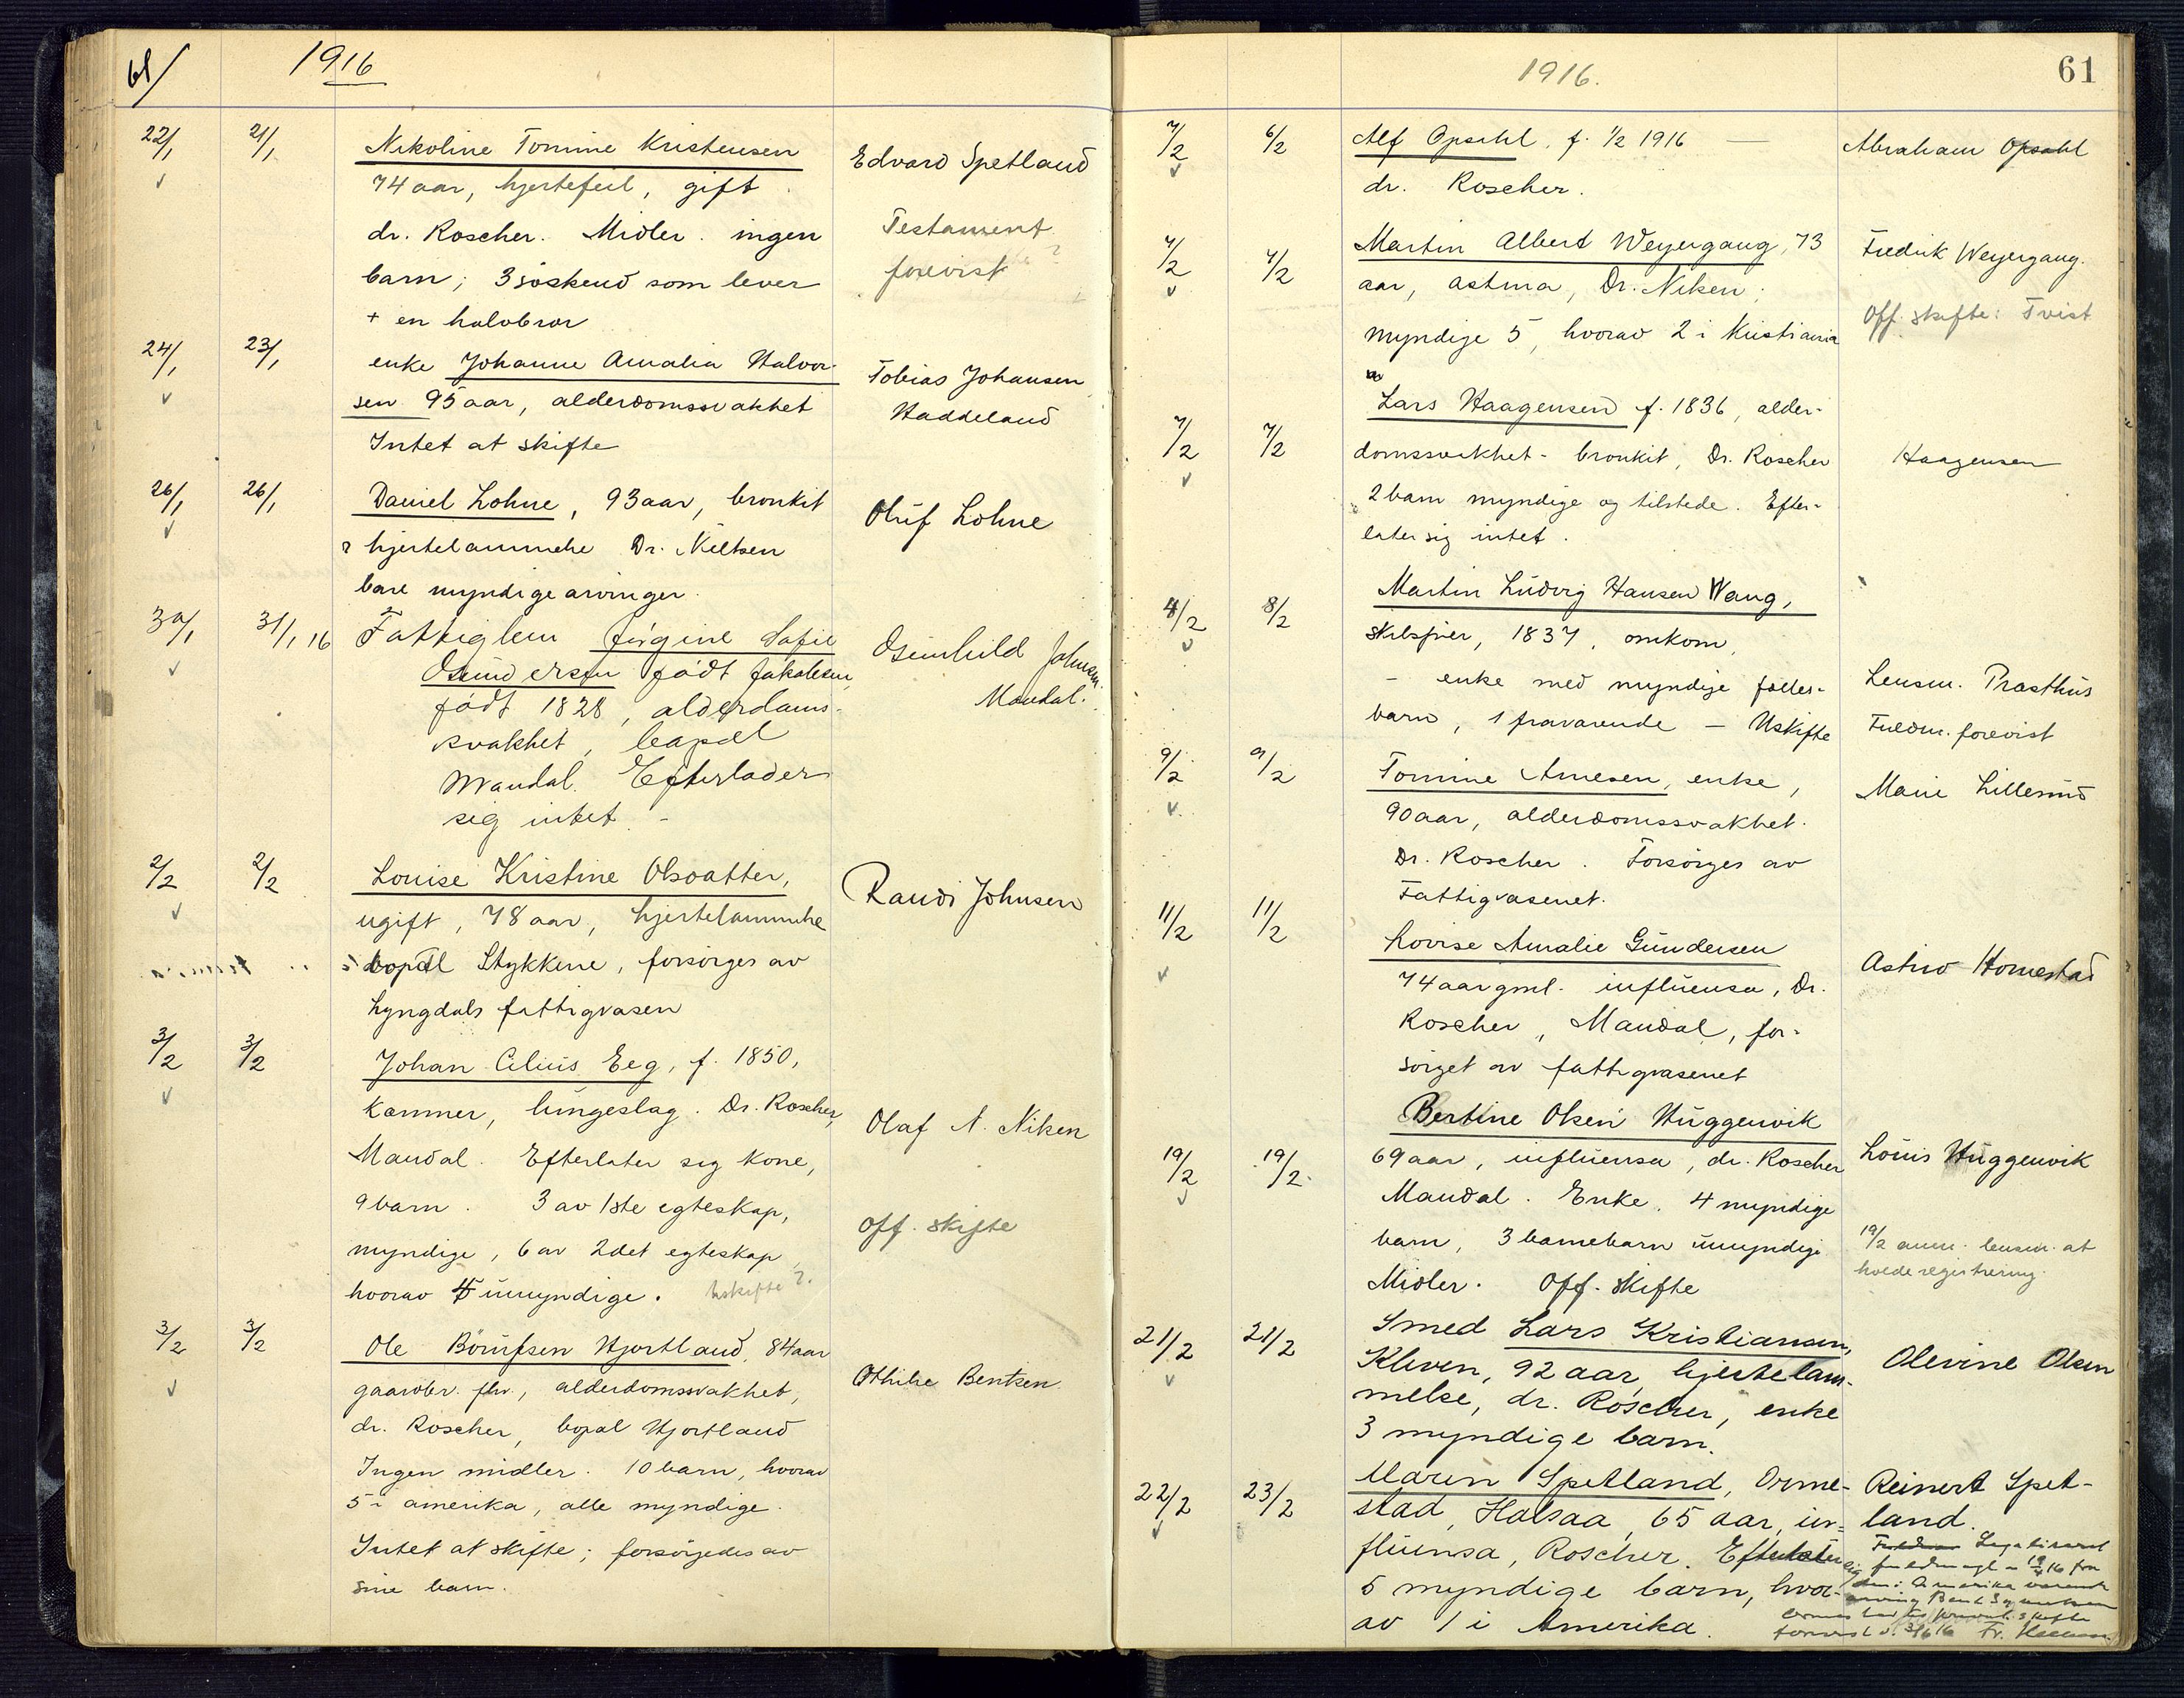 61/
1916
22/1 21/1 Nikoline Tomine Kristensen
74 aar, hjertefeil, gift
dr. Roscher. Midler. ingen
barn; 3 söskend som lever
+ en halvbror
Edvard Spetland
Testament
forevist
24/1 23/1 enke Johanne Amalia Halvor-
sen 95 aar, alderdomssvakhet
Intet at skifte
Tobias Johansen
Haddeland
26/1 26/1 Daniel Lohne, 93 aar, bronkit
hjertelammelse Dr. Nielsen
bare myndige arvinger.
Oluf Lohne
30/1 31/1 16 Fattiglem Jörgine Sofie
Osmundsen født Jakobsen,
født 1828, alderdoms-
svakhet, bopæl
Mandal. Efterlader
sig intet -
Osmhild Johnsen
Mandal.
2/2 2/2 Louise Kristine Olsdatter,
ugift, 78 aar, hjertelammelse
bopæl Stykkene, forsörges av
Lyngdals fattigvæsen
Randi Johnsen
3/2 3/2 Johan Celius Eeg, f. 1850,
kæmner, lungeslag. Dr. Roscher,
Mandal. Efterlater sig kone,
9 barn. 3 av 1ste egteskap,
myndige, 6 av 2det egteskap,
hvorav 4 umyndige. Uskifte?
Olaf N. Niken
Off. skifte
3/2 3/2 Ole Börufsen Hjortland, 84 aar
gaardbr. fhv., alderdomssvakhet,
dr. Roscher, bopæl Hjortland
Ingen midler. 10 barn, hvorav
5 i amerika, alle myndige.
Intet at skifte; forsörgedes av
sine barn.
Othilie Bentsen
1916.
61
7/2 6/2 Alf Opsahl, f. 1/2 1916 —
dr. Roscher.
Abraham Opsahl
7/2 4/2 Martin Albert Weyergang, 73
aar, astma, Dr. Niken;
myndige 5, hvorav 2 i Kristiania
Fredrik Weyergang.
Off. skifte: Tvist
7/2 7/2 Lars Haagensen f. 1836, alder-
domssvakhet - bronkit, Dr. Roscher
2 barn myndige og tilstede. Efter-
later sig intet.
Haagensen
8/2 8/2 Martin Ludvig Hansen Wang,
1837, omkom,
- enke med myndige fælles-
barn, 1 fraværende - Uskifte
Lensm. Præsthus
Fuldm. forevist
9/2 9/2 Tomine Arnesen, enke,
90 aar, alderdomssvakhet.
Dr. Roscher. Forsörges av
Fattigvæsenet.
Marie Lillesund
11/2 11/2 Lovise Amalie Gundersen
74 aar gml. influensa, Dr.
Roscher, Mandal, for-
sörget av fattigvæsenet
Astrid Homestad
19/2 19/2 Bertine Olsen Huggenvik
69 aar, influensa, dr. Roscher
Mandal. Enke. 4 myndige
barn, 3 barnebarn umyndige
Midler. Off. skifte
Louis Huggenvik
19/2 anm. lensm. at
holde registrering.
21/2 21/2 Smed Lars Kristiansen,
Kleven, 92 aar, hjertelam-
melse, dr. Roscher, enke
3 myndige barn.
Olevine Olsen
22/2 23/2 Maren Spetland, Orme-
stad, Halsaa, 65 aar, in-
fluensa, Roscher. Efterlater sig
5 myndige barn, hvor-
av 1 i Amerika.
Reinert Spet-
land.
Legaliseret
fuldmagt
i Amerika
privat skifte